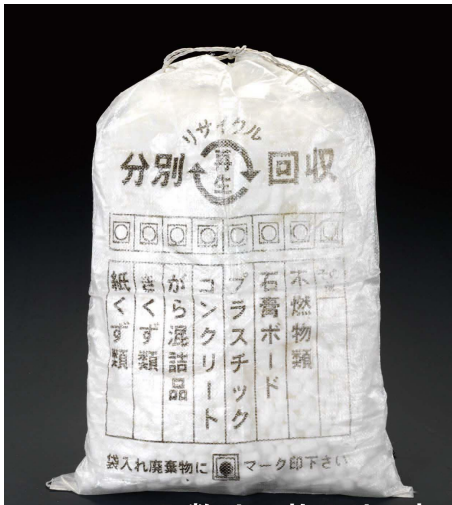 リサイクル
分別 再生 回収
紙くず類
きくず類
がら混詰品
コンクリート
プラスチック
石膏ボード
不燃物類
袋入れ廃棄物に マーク印下さい